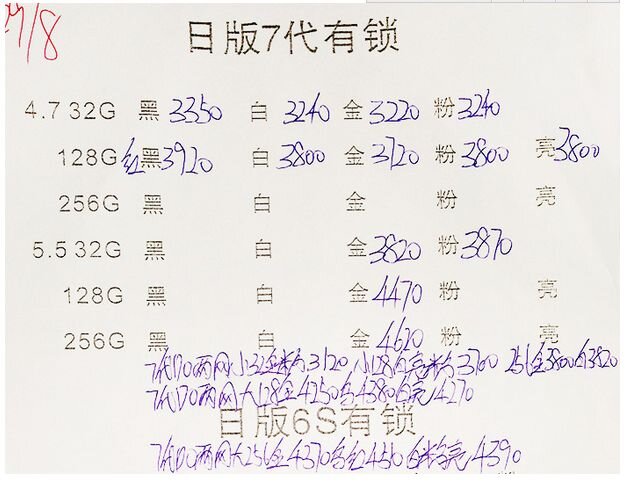 29/8
日版7代有锁
4.7 32G 黑 3350 白 3240 金 3220 粉 3240
128G 红黑 3920 白 3800 金 3720 粉 3800 亮 3800
256G 黑 白 金 粉 亮
5.5 32G 黑 白 金 3820 粉 3870
128G 黑 白 金 4470 粉 亮
256G 黑 白 金 4620 粉 亮
7代DO两网小32金粉白3120 小128白亮粉白3700 256金3800白3820
7代DO两网大128金4250白4380白亮4270
日版6S有锁
7代DO两网大256金4370白红4510白粉亮4390